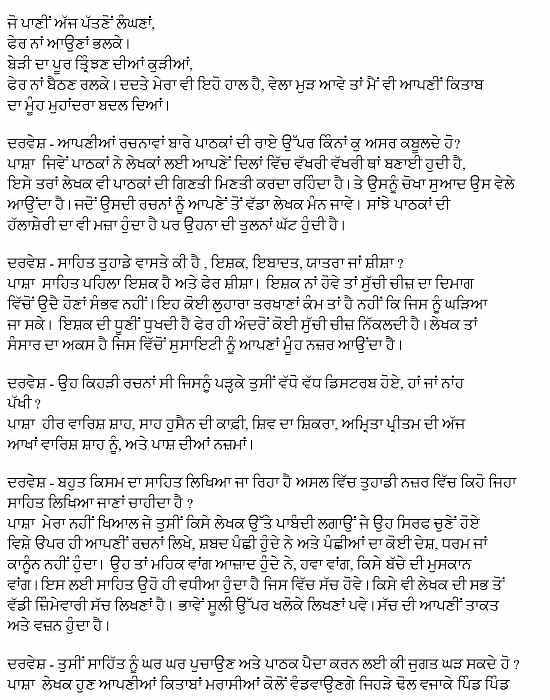 ਜੋ ਪਾਣੀਂ ਅੱਜ ਪੱਤਣੋਂ ਲੰਘਣਾਂ,
ਫੇਰ ਨਾਂ ਆਉਣਾਂ ਭਲਕੇ।
ਬੇੜੀ ਦਾ ਪੂਰ ਤ੍ਰਿੰਝਣ ਦੀਆਂ ਕੁੜੀਆਂ,
ਫੇਰ ਨਾਂ ਬੈਠਣ ਰਲਕੇ। ਦਦਤੇ ਮੇਰਾ ਵੀ ਇਹੋ ਹਾਲ ਹੈ, ਵੇਲਾ ਮੁੜ ਆਵੇ ਤਾਂ ਮੈਂ ਵੀ ਆਪਣੀਂ ਕਿਤਾਬ
ਦਾ ਮੂੰਹ ਮੁਹਾਂਦਰਾ ਬਦਲ ਦਿਆਂ।
ਦਰਵੇਸ਼ - ਆਪਣੀਆਂ ਰਚਨਾਵਾਂ ਬਾਰੇ ਪਾਠਕਾਂ ਦੀ ਰਾਏ ਉੱਪਰ ਕਿੰਨਾਂ ਕੁ ਅਸਰ ਕਬੂਲਦੇ ਹੋ?
ਪਾਸ਼ਾ ਜਿਵੇਂ ਪਾਠਕਾਂ ਨੇ ਲੇਖਕਾਂ ਲਈ ਆਪਣੇਂ ਦਿਲਾਂ ਵਿੱਚ ਵੱਖਰੀ ਵੱਖਰੀ ਥਾਂ ਬਣਾਈ ਹੁਦੀ ਹੈ,
ਇਸੇ ਤਰਾਂ ਲੇਖਕ ਵੀ ਪਾਠਕਾਂ ਦੀ ਗਿਣਤੀ ਮਿਣਤੀ ਕਰਦਾ ਰਹਿੰਦਾ ਹੈ। ਤੇ ਉਸਨੂੰ ਚੋਖਾ ਸੁਆਦ ਉਸ ਵੇਲੇ
ਆਉਂਦਾ ਹੈ। ਜਦੋਂ ਉਸਦੀ ਰਚਨਾਂ ਨੂੰ ਆਪਣੇਂ ਤੋਂ ਵੱਡਾ ਲੇਖਕ ਮੰਨ ਜਾਵੇ। ਸਾਂਝੇ ਪਾਠਕਾਂ ਦੀ
ਹੱਲਾਸ਼ੇਰੀ ਦਾ ਵੀ ਮਜ਼ਾ ਹੁੰਦਾ ਹੈ ਪਰ ਉਹਨਾ ਦੀ ਤੁਲਨਾਂ ਘੱਟ ਹੁੰਦੀ ਹੈ।
ਦਰਵੇਸ਼ - ਸਾਹਿਤ ਤੁਹਾਡੇ ਵਾਸਤੇ ਕੀ ਹੈ , ਇਸ਼ਕ, ਇਬਾਦਤ, ਯਾਤਰਾ ਜਾਂ ਸ਼ੀਸ਼ਾ ?
ਪਾਸ਼ਾ ਸਾਹਿਤ ਪਹਿਲਾ ਇਸ਼ਕ ਹੈ ਅਤੇ ਫੇਰ ਸ਼ੀਸ਼ਾ। ਇਸ਼ਕ ਨਾਂ ਹੋਵੇ ਤਾਂ ਸੁੱਚੀ ਚੀਜ਼ ਦਾ ਦਿਮਾਗ
ਵਿੱਚੋਂ ਉਦੈ ਹੋਣਾਂ ਸੰਭਵ ਨਹੀਂ। ਇਹ ਕੋਈ ਲੁਹਾਰਾ ਤਰਖਾਣਾਂ ਕੰਮ ਤਾਂ ਹੈ ਨਹੀਂ ਕਿ ਜਿਸ ਨੂੰ ਘੜਿਆ
ਜਾ ਸਕੇ। ਇਸ਼ਕ ਦੀ ਧੂਣੀਂ ਧੁਖਦੀ ਹੈ ਫੇਰ ਹੀ ਅੰਦਰੋਂ ਕੋਈ ਸੁੱਚੀ ਚੀਜ਼ ਨਿੱਕਲਦੀ ਹੈ। ਲੇਖਕ ਤਾਂ
ਸੰਸਾਰ ਦਾ ਅਕਸ ਹੈ ਜਿਸ ਵਿੱਚੋਂ ਸੁਸਾਇਟੀ ਨੂੰ ਆਪਣਾਂ ਮੂੰਹ ਨਜ਼ਰ ਆਉਂਦਾ ਹੈ।
ਦਰਵੇਸ਼ - ਉਹ ਕਿਹੜੀ ਰਚਨਾਂ ਸੀ ਜਿਸਨੂੰ ਪੜ੍ਹਕੇ ਤੁਸੀਂ ਵੱਧੋ ਵੱਧ ਡਿਸਟਰਬ ਹੋਏ, ਹਾਂ ਜਾਂ ਨਾਂਹ
ਪੱਖੀ ?
ਪਾਸ਼ਾ ਹੀਰ ਵਾਰਿਸ਼ ਸ਼ਾਹ, ਸਾਹ ਹੁਸੈਨ ਦੀ ਕਾਫੀ, ਸ਼ਿਵ ਦਾ ਸ਼ਿਕਰਾ, ਅਮ੍ਰਿਤਾ ਪ੍ਰੀਤਮ ਦੀ ਅੱਜ
ਆਖਾਂ ਵਾਰਿਸ਼ ਸ਼ਾਹ ਨੂੰ, ਅਤੇ ਪਾਸ਼ ਦੀਆਂ ਨਜ਼ਮਾਂ।
ਦਰਵੇਸ਼ - ਬਹੁਤ ਕਿਸਮ ਦਾ ਸਾਹਿਤ ਲਿਖਿਆ ਜਾ ਰਿਹਾ ਹੈ ਅਸਲ ਵਿੱਚ ਤੁਹਾਡੀ ਨਜ਼ਰ ਵਿੱਚ ਕਿਹੋ ਜਿਹਾ
ਸਾਹਿਤ ਲਿਖਿਆ ਜਾਣਾਂ ਚਾਹੀਦਾ ਹੈ ?
ਪਾਸ਼ਾ ਮੇਰਾ ਨਹੀਂ ਖਿਆਲ ਜੇ ਤੁਸੀਂ ਕਿਸੇ ਲੇਖਕ ਉੱਤੇ ਪਾਬੰਦੀ ਲਗਾਉਂ ਜੇ ਉਹ ਸਿਰਫ ਚੁਣੇਂ ਹੋਏ
ਵਿਸ਼ੇ ੳਪਰ ਹੀ ਆਪਣੀਂ ਰਚਨਾਂ ਲਿਖੇ, ਸ਼ਬਦ ਪੰਛੀ ਹੁੰਦੇ ਨੇ ਅਤੇ ਪੰਛੀਆਂ ਦਾ ਕੋਈ ਦੇਸ਼, ਧਰਮ ਜਾਂ
ਕਾਨੂੰਨ ਨਹੀਂ ਹੁੰਦਾ। ਉਹ ਤਾਂ ਮਹਿਕ ਵਾਂਗ ਆਜ਼ਾਦ ਹੁੰਦੇ ਨੇ, ਹਵਾ ਵਾਂਗ, ਕਿਸੇ ਬੱਚੇ ਦੀ ਮੁਸਕਾਨ
ਵਾਂਗ। ਇਸ ਲਈ ਸਾਹਿਤ ਉਹੋ ਹੀ ਵਧੀਆ ਹੁੰਦਾ ਹੈ ਜਿਸ ਵਿੱਚ ਸੱਚ ਹੋਵੇ। ਕਿਸੇ ਵੀ ਲੇਖਕ ਦੀ ਸਭ ਤੋਂ
ਵੱਡੀ ਜ਼ਿੰਮੇਵਾਰੀ ਸੱਚ ਲਿਖਣਾਂ ਹੈ। ਭਾਵੇਂ ਸੂਲੀ ਉੱਪਰ ਖਲੋਕੇ ਲਿਖਣਾਂ ਪਵੇ। ਸੱਚ ਦੀ ਆਪਣੀਂ ਤਾਕਤ
ਅਤੇ ਵਜ਼ਨ ਹੁੰਦਾ ਹੈ।
ਦਰਵੇਸ਼ - ਤੁਸੀਂ ਸਾਹਿੱਤ ਨੂੰ ਘਰ ਘਰ ਪੁਚਾਉਣ ਅਤੇ ਪਾਠਕ ਪੈਦਾ ਕਰਨ ਲਈ ਕੀ ਜੁਗਤ ਘੜ ਸਕਦੇ ਹੋ ?
ਪਾਸ਼ਾ ਲੇਖਕ ਹੁਣ ਆਪਣੀਆਂ ਕਿਤਾਬਾਂ ਮਰਾਸੀਆਂ ਕੋਲੋਂ ਵੰਡਵਾਉਣਗੇ ਜਿਹੜੇ ਢੋਲ ਵਜਾਕੇ ਪਿੰਡ ਪਿੰਡ